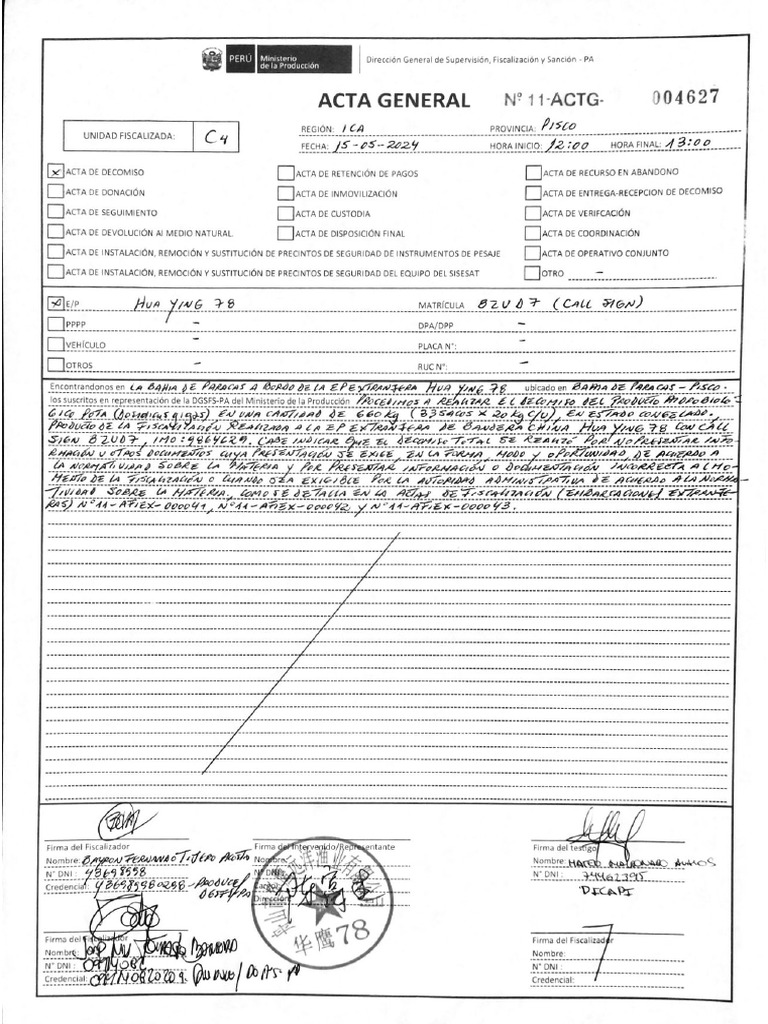 PERÚ Ministerio de la Producción Dirección General de Supervisión, Fiscalización y Sanción - PA
ACTA GENERAL Nº 11-ACTG- 004627
UNIDAD FISCALIZADA: C4
REGIÓN: ICA PROVINCIA: PISCO
FECHA: 15-05-2024 HORA INICIO: 12:00 HORA FINAL: 13:00
x ACTA DE DECOMISO ACTA DE RETENCIÓN DE PAGOS ACTA DE RECURSO EN ABANDONO
ACTA DE DONACIÓN ACTA DE INMOVILIZACIÓN ACTA DE ENTREGA-RECEPCION DE DECOMISO
ACTA DE SEGUIMIENTO ACTA DE CUSTODIA ACTA DE VERIFCACIÓN
ACTA DE DEVOLUCIÓN Al MEDIO NATURAL ACTA DE DISPOSICIÓN FINAL ACTA DE COORDINACIÓN
ACTA DE INSTALACIÓN, REMOCIÓN Y SUSTITUCIÓN DE PRECINTOS DE SEGURIDAD DE INSTRUMENTOS DE PESAJE ACTA DE OPERATIVO CONJUNTO
ACTA DE INSTALACIÓN, REMOCIÓN Y SUSTITUCIÓN DE PRECINTOS DE SEGURIDAD DEL EQUIPO DEL SISESAT OTRO -
x E/P HUA YING 78 MATRÍCULA BZUD7 (CALL SIGN)
PPPP - DPA/DPP -
VEHÍCULO - PLACA N°: -
OTROS - RUC N°: -
Encontrandonos en LA BAHIA DE PARACAS A BORDO DE LA EP EXTRANJERA HUA YING 78 ubicado en BAHIA DE PARACAS - PISCO.
los suscritos en representación de la DGSFS-PA del Ministerio de la Producción PROCEDIMOS A REALIZAR EL DECOMISO DEL PRODUCTO HIDROBIOLO-
GICO POTA (Dosidicus gigas) EN UNA CANTIDAD DE 660 Kg (33 SACOS x 20 Kg C/U) EN ESTADO CONGELADO,
PRODUCTO DE LA FISCALIZACIÓN REALIZADA A LA EP EXTRANJERA DE BANDERA CHINA HUA YING 78 CON CALL
SIGN BZUD7, IMO: 9864629. CABE INDICAR QUE EL DECOMISO TOTAL SE REALIZÓ POR NO PRESENTAR INFO-
RMACIÓN U OTROS DOCUMENTOS CUYA PRESENTACIÓN SE EXIGE, EN LA FORMA, MODO Y OPORTUNIDAD, DE ACUERDO A
LA NORMATIVIDAD SOBRE LA MATERIA Y POR PRESENTAR INFORMACIÓN O DOCUMENTACIÓN INCORRECTA AL MO-
MENTO DE LA FISCALIZACIÓN O CUANDO SEA EXIGIBLE POR LA AUTORIDAD ADMINISTRATIVA DE ACUERDO A LA NORMA-
TIVIDAD SOBRE LA MATERIA, COMO SE DETALLA EN LA ACTAS DE FISCALIZACIÓN (EMBARCACIONES EXTRANJE-
RAS) N° 11-AFIEX-000041, N° 11-AFIEX-000042 Y N° 11-AFIEX-000043.
Firma del Fiscalizador Firma del Intervenido/Representante Firma del testigo
Nombre: BAYRON FERNANDO TIJERO ACOSTA Nombre: Nombre: MATEO MALDONADO
N° DNI: 43698558 N° DNI: N° DNI: 74462395
Credencial: -PRODUCE/ Cargo: DICAPI
DGSFS/PA Dirección:
华鹰78
Firma del Fiscalizador Firma del Fiscalizador
Nombre: Nombre:
N° DNI: N° DNI:
Credencial: Credencial: